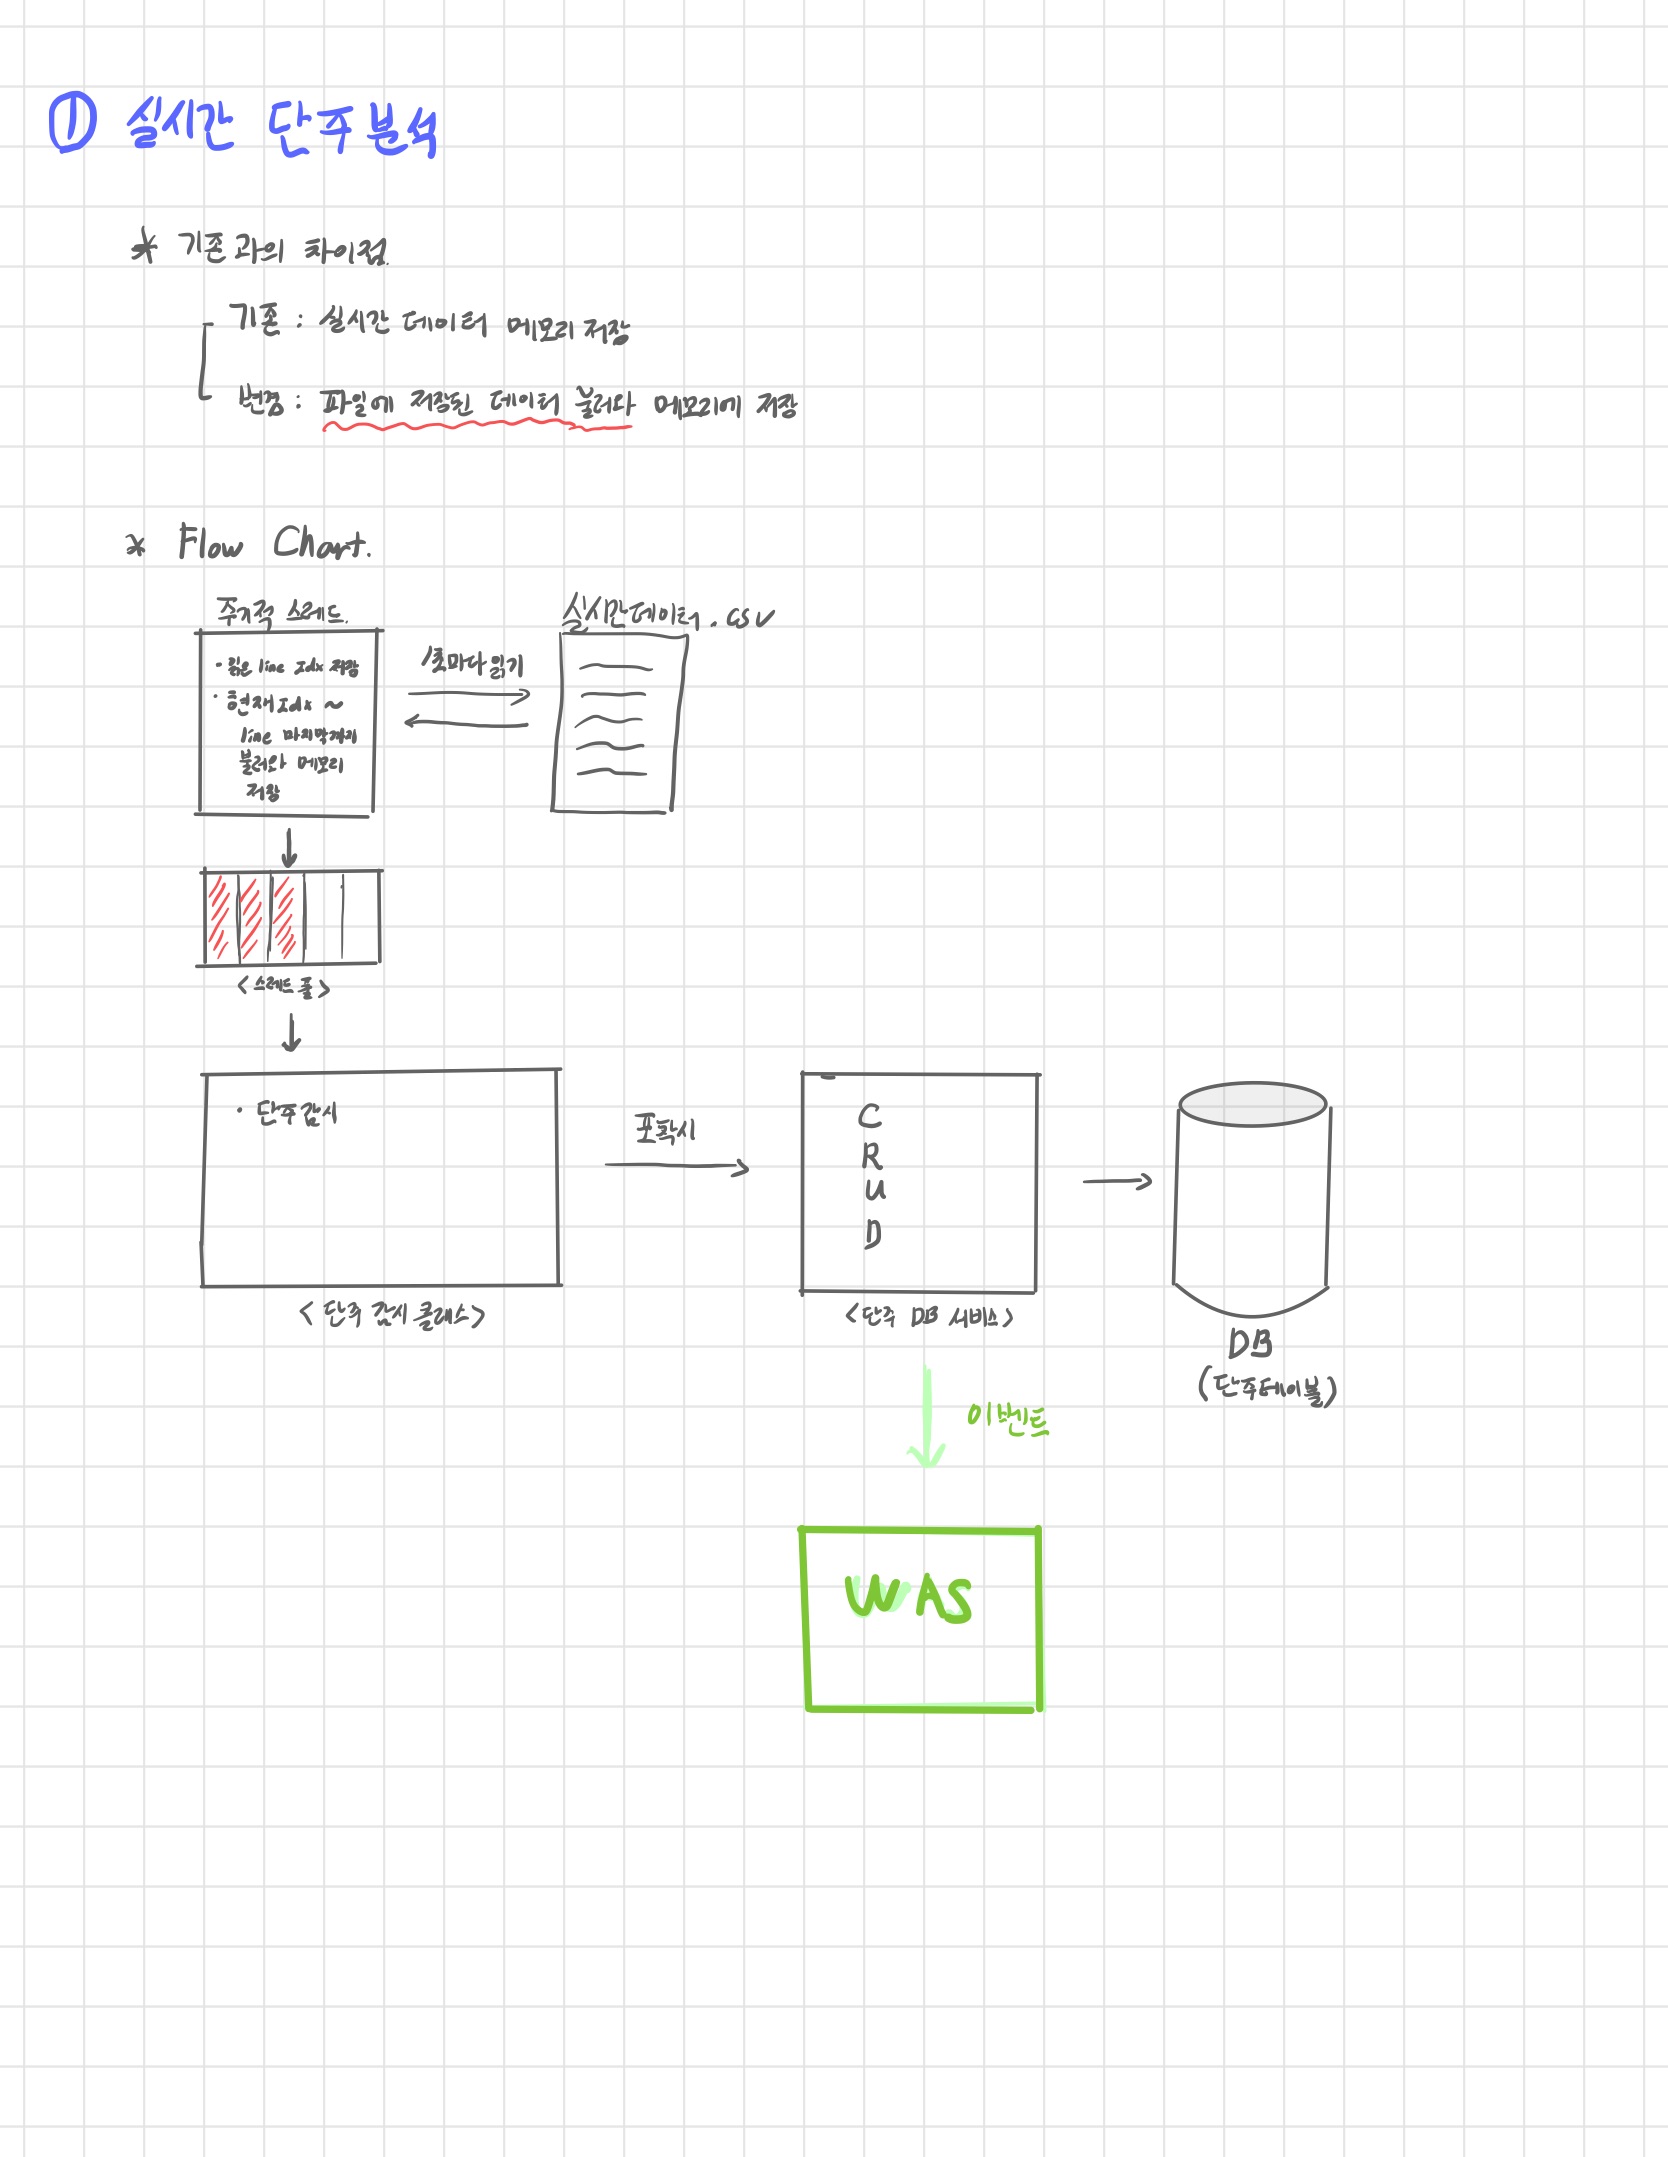 ① 실시간 단주분석
* 기존과의 차이점.
기존 : 실시간 데이터 메모리 저장
변경 : 파일에 저장된 데이터 불러와 메모리에 저장
* Flow Chart.
주기적 스레드.
· 읽은 line Idx 저장
· 현재Idx ~
line 마지막까지
불러와 메모리
저장
초마다 읽기
실시간데이터.csv
<스레드 풀>
· 단주감시
<단주 감시 클래스>
포착시
C
R
U
D
<단주 DB 서비스>
DB
(단주테이블)
이벤트
WAS